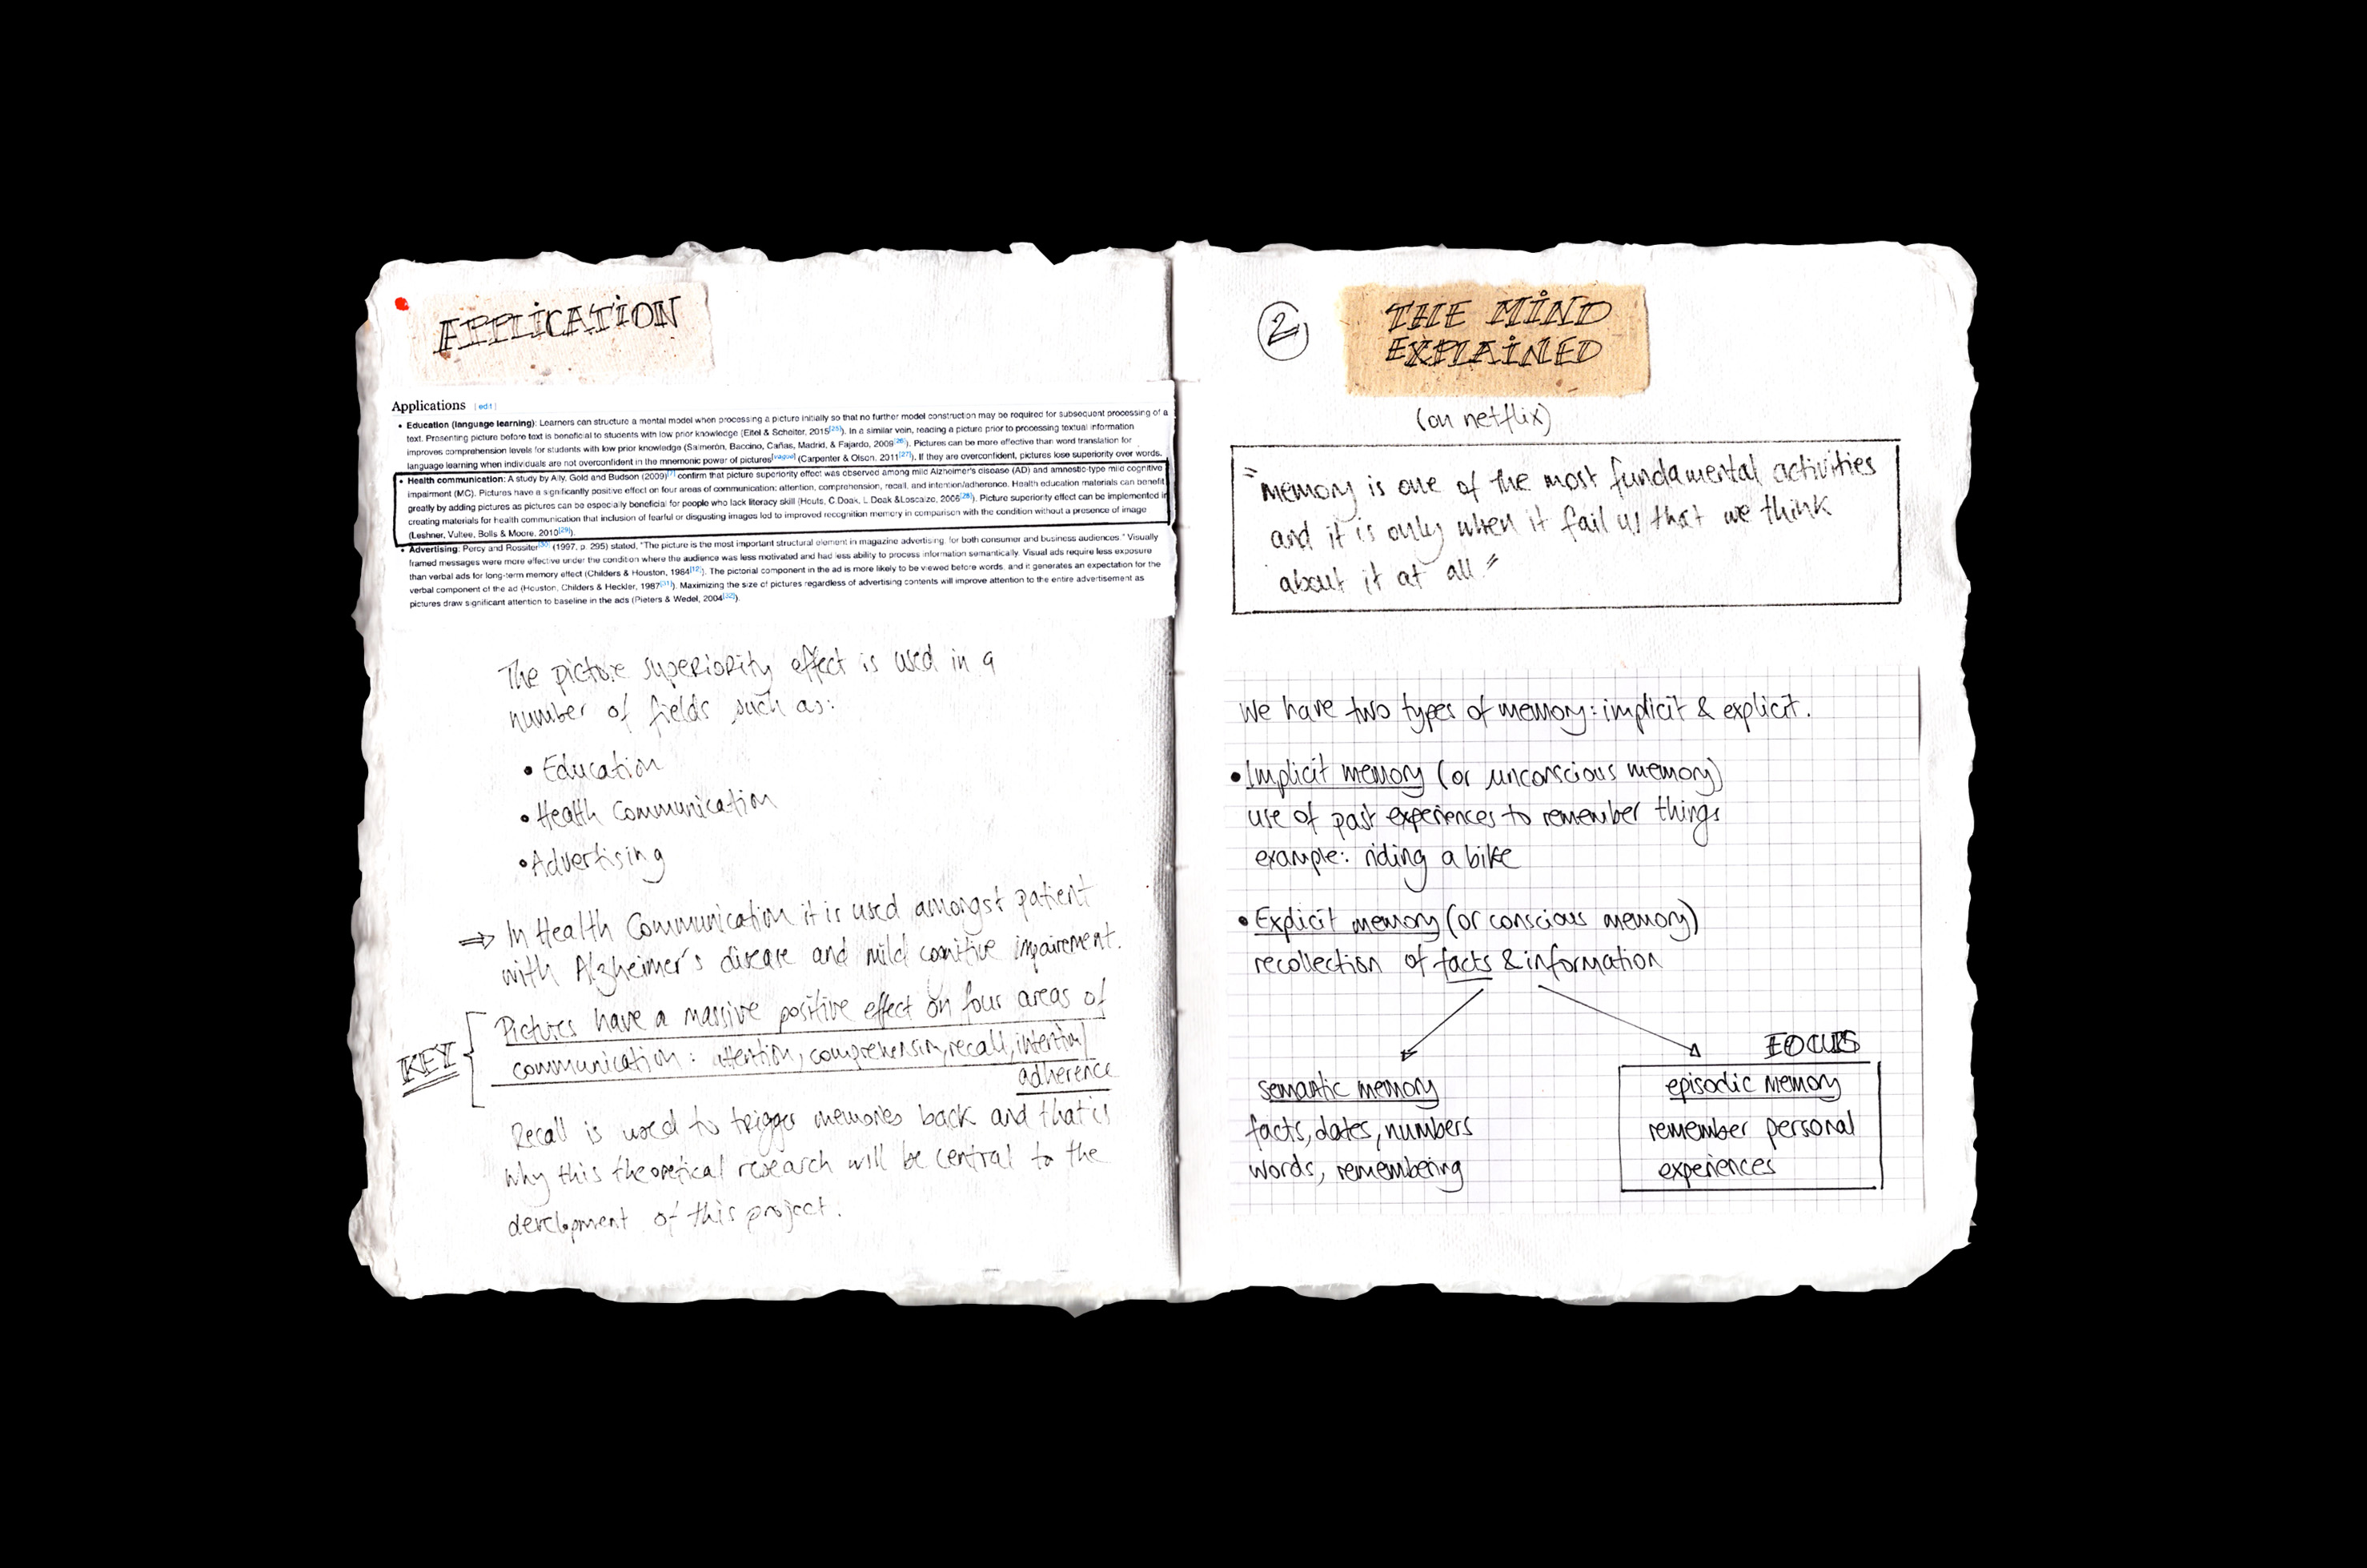 APPLICATION
Applications [edit]
• Education (language learning): Learners can structure a mental model when processing a picture initially so that no further model construction may be required for subsequent processing of a
text. Presenting picture before text is beneficial to students with low prior knowledge (Eitel & Scheiter, 2015[25]). In a similar vein, reading a picture prior to processing textual information
improves comprehension levels for students with low prior knowledge (Salmerón, Baccino, Cañas, Madrid, & Fajardo, 2009[26]). Pictures can be more effective than word translation for
language learning when individuals are not overconfident in the mnemonic power of pictures[vague] (Carpenter & Olson, 2011[27]). If they are overconfident, pictures lose superiority over words.
• Health communication: A study by Ally, Gold and Budson (2009) confirm that picture superiority effect was observed among mild Alzheimer's disease (AD) and amnestic-type mild cognitive
impairment (MC). Pictures have a significantly positive effect on four areas of communication: attention, comprehension, recall, and intention/adherence. Health education materials can benefit
greatly by adding pictures as pictures can be especially beneficial for people who lack literacy skill (Houts, C.Doak, L.Doak &Loscalzo, 2006[28]). Picture superiority effect can be implemented in
creating materials for health communication that inclusion of fearful or disgusting images led to improved recognition memory in comparison with the condition without a presence of image
(Leshner, Vultee, Bolls & Moore, 2010[29]).
• Advertising: Percy and Rossiter[30] (1997, p. 295) stated, "The picture is the most important structural element in magazine advertising, for both consumer and business audiences." Visually
framed messages were more effective under the condition where the audience was less motivated and had less ability to process information semantically. Visual ads require less exposure
than verbal ads for long-term memory effect (Childers & Houston, 1984[12]). The pictorial component in the ad is more likely to be viewed before words, and it generates an expectation for the
verbal component of the ad (Houston, Childers & Heckler, 1987[31]). Maximizing the size of pictures regardless of advertising contents will improve attention to the entire advertisement as
pictures draw significant attention to baseline in the ads (Pieters & Wedel, 2004[32]).
The picture superiority effect is used in a
number of fields such as:
• Education
• Health Communication
• Advertising
⇒ In Health Communication it is used amongst patient
with Alzheimer's disease and mild cognitive impairement.
KEY
Pictures have a massive positive effect on four areas of
communication: attention, comprehension, recall, intention/
adherence
Recall is used to trigger memories back and that is
why this theoretical research will be central to the
development of this project.
2
THE MIND
EXPLAINED
(on netflix)
"memory is one of the most fundamental activities
and it is only when it fail us that we think
about it at all."
We have two types of memory: implicit & explicit.
• Implicit memory (or unconscious memory)
use of past experiences to remember things
example: riding a bike
• Explicit memory (or conscious memory)
recollection of facts & information
semantic memory
facts, dates, numbers
words, remembering
FOCUS
episodic memory
remember personal
experiences